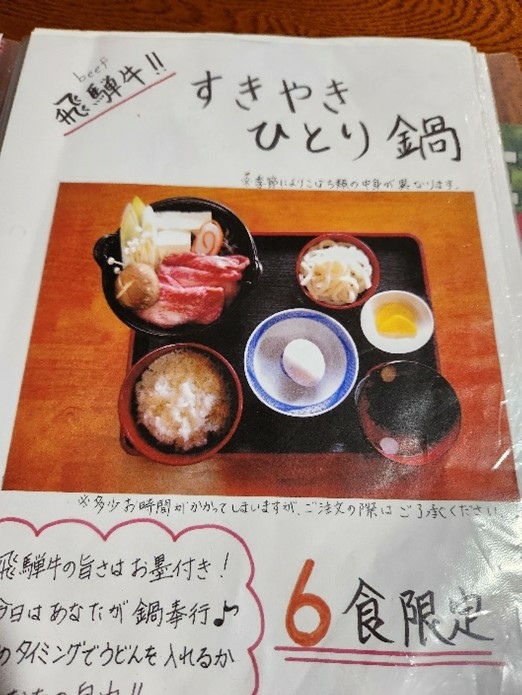 beef
飛騨牛!!
すきやき
ひとり鍋
※季節によりこばち類の中身が異なります。
※多少お時間がかかってしまいますが、ご注文の際はご了承ください
飛騨牛の旨さはお墨付き!
今日はあなたが鍋奉行♪
のタイミングでうどんを入れるか
6食限定